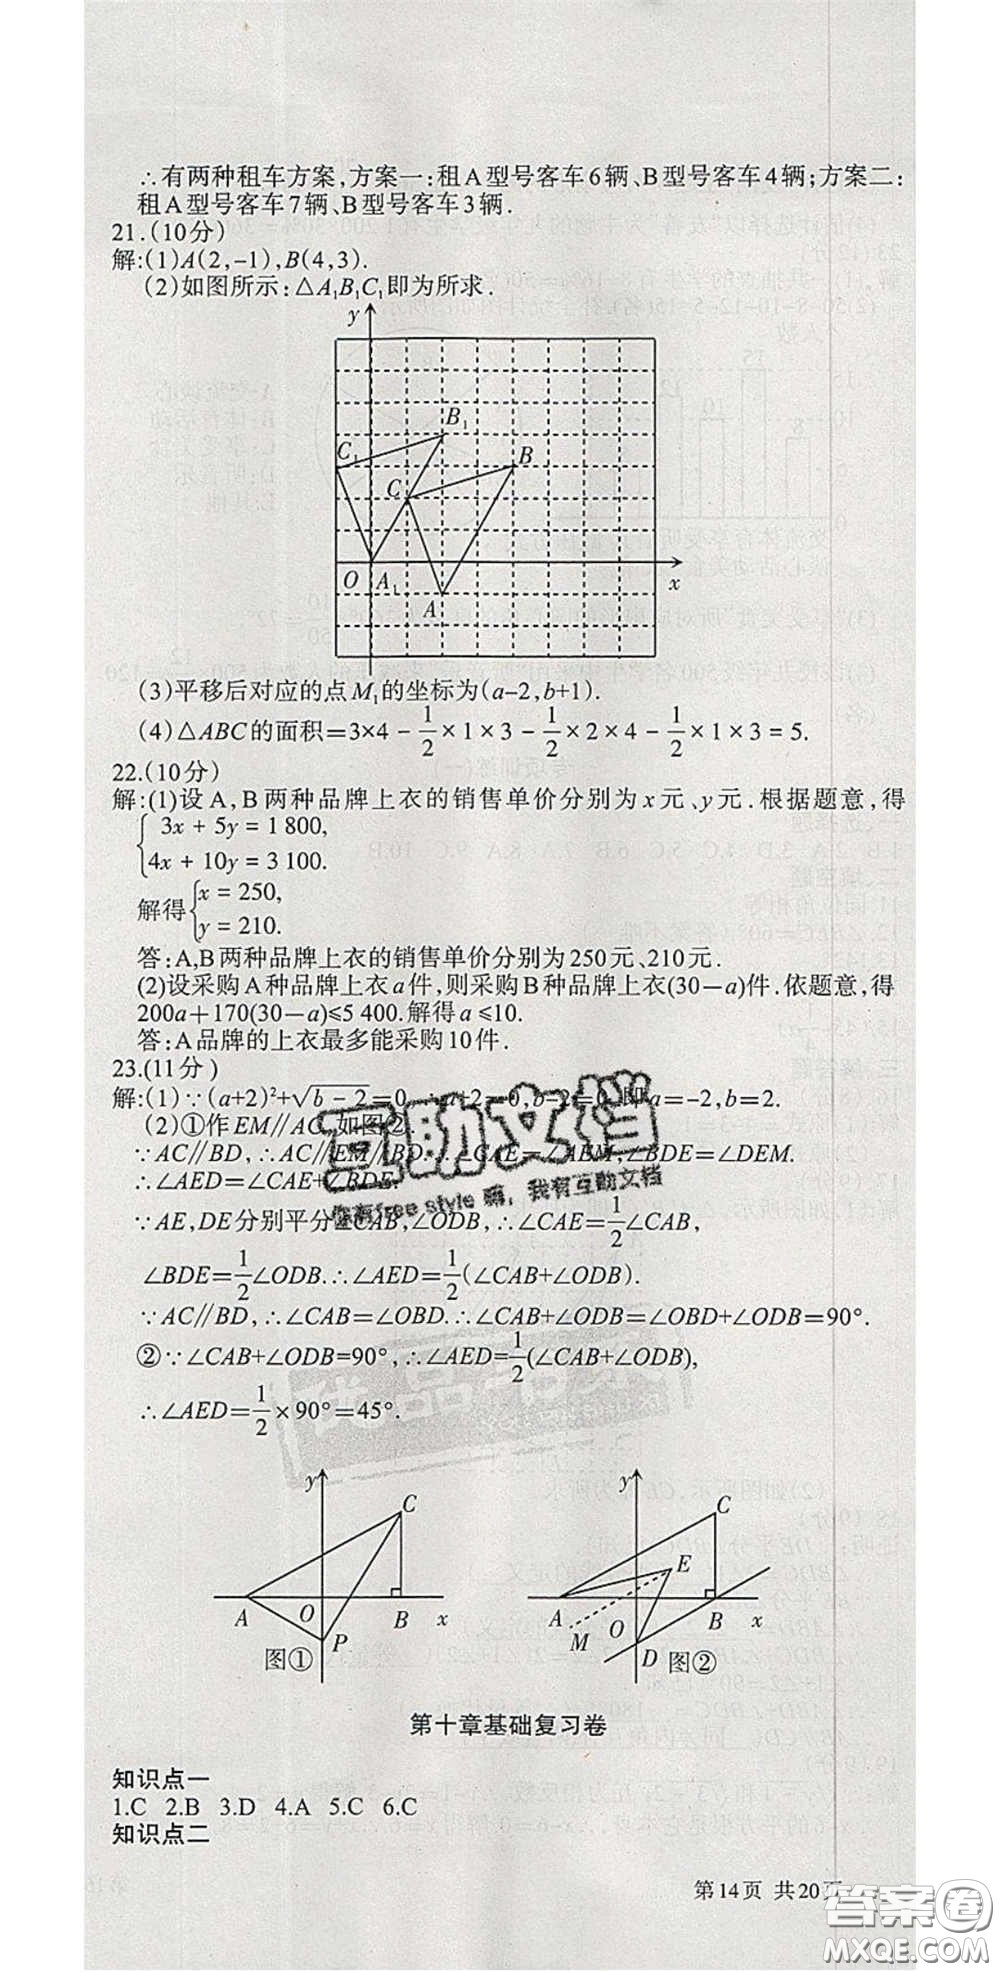 ∴有两种租车方案,方案一:租A型号客车6辆、B型号客车4辆;方案二:
租A型号客车7辆、B型号客车3辆.
21.(10分)
解:(1)A(2,-1),B(4,3).
(2)如图所示:△A₁B₁C₁即为所求.
y
B₁
C₁
B
C
O A₁
x
A
(3)平移后对应的点M₁的坐标为(a-2,b+1).
(4)△ABC的面积=3×4-1/2×1×3-1/2×2×4-1/2×1×3=5.
22.(10分)
解:(1)设A,B两种品牌上衣的销售单价分别为x元、y元.根据题意,得
3x+5y=1 800,
4x+10y=3 100.
解得
x=250,
y=210.
答:A,B两种品牌上衣的销售单价分别为250元、210元.
(2)设采购A种品牌上衣a件,则采购B种品牌上衣(30-a)件.依题意,得
200a+170(30-a)≤5 400.解得a≤10.
答:A品牌的上衣最多能采购10件.
23.(11分)
解:(1)∵(a+2)²+√(b-2)=0,∴a+2=0,b-2=0,即a=-2,b=2.
(2)①作EM∥AC,如图②.
∵AC∥BD,∴AC∥EM∥BD.∴∠CAE=∠AEM,∠BDE=∠DEM.
∴∠AED=∠CAE+∠BDE.
∵AE,DE分别平分∠CAB,∠ODB,∴∠CAE=1/2∠CAB,
∠BDE=1/2∠ODB.∴∠AED=1/2(∠CAB+∠ODB).
∵AC∥BD,∴∠CAB=∠OBD.∴∠CAB+∠ODB=∠OBD+∠ODB=90°.
②∵∠CAB+∠ODB=90°,∴∠AED=1/2(∠CAB+∠ODB),
∴∠AED=1/2×90°=45°.
互助文档
你有free style 嘛,我有互動文档
y
C
A O B x
P
图①
y
C
E
A O B x
M
D 图②
第十章基础复习卷
知识点一
1.C 2.B 3.D 4.A 5.C 6.C
知识点二
第14页 共20页
答案卷
MXQE.COM